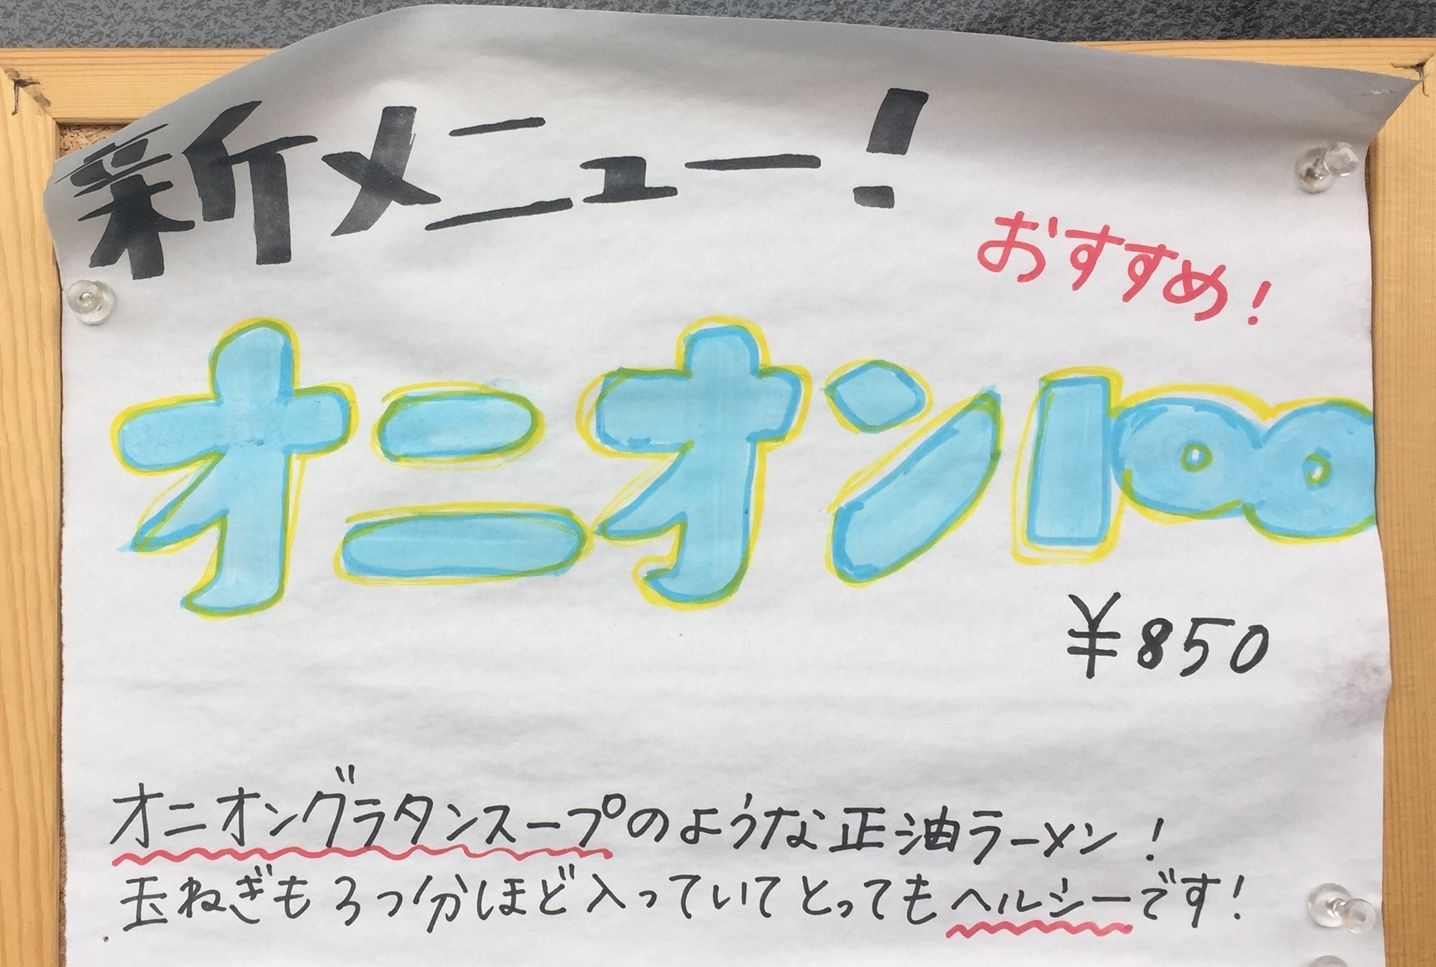 新メニュー!
おすすめ!
オニオン100
¥850
オニオングラタンスープのような正油ラーメン!
玉ねぎも3つ分ほど入っていてとってもヘルシーです!